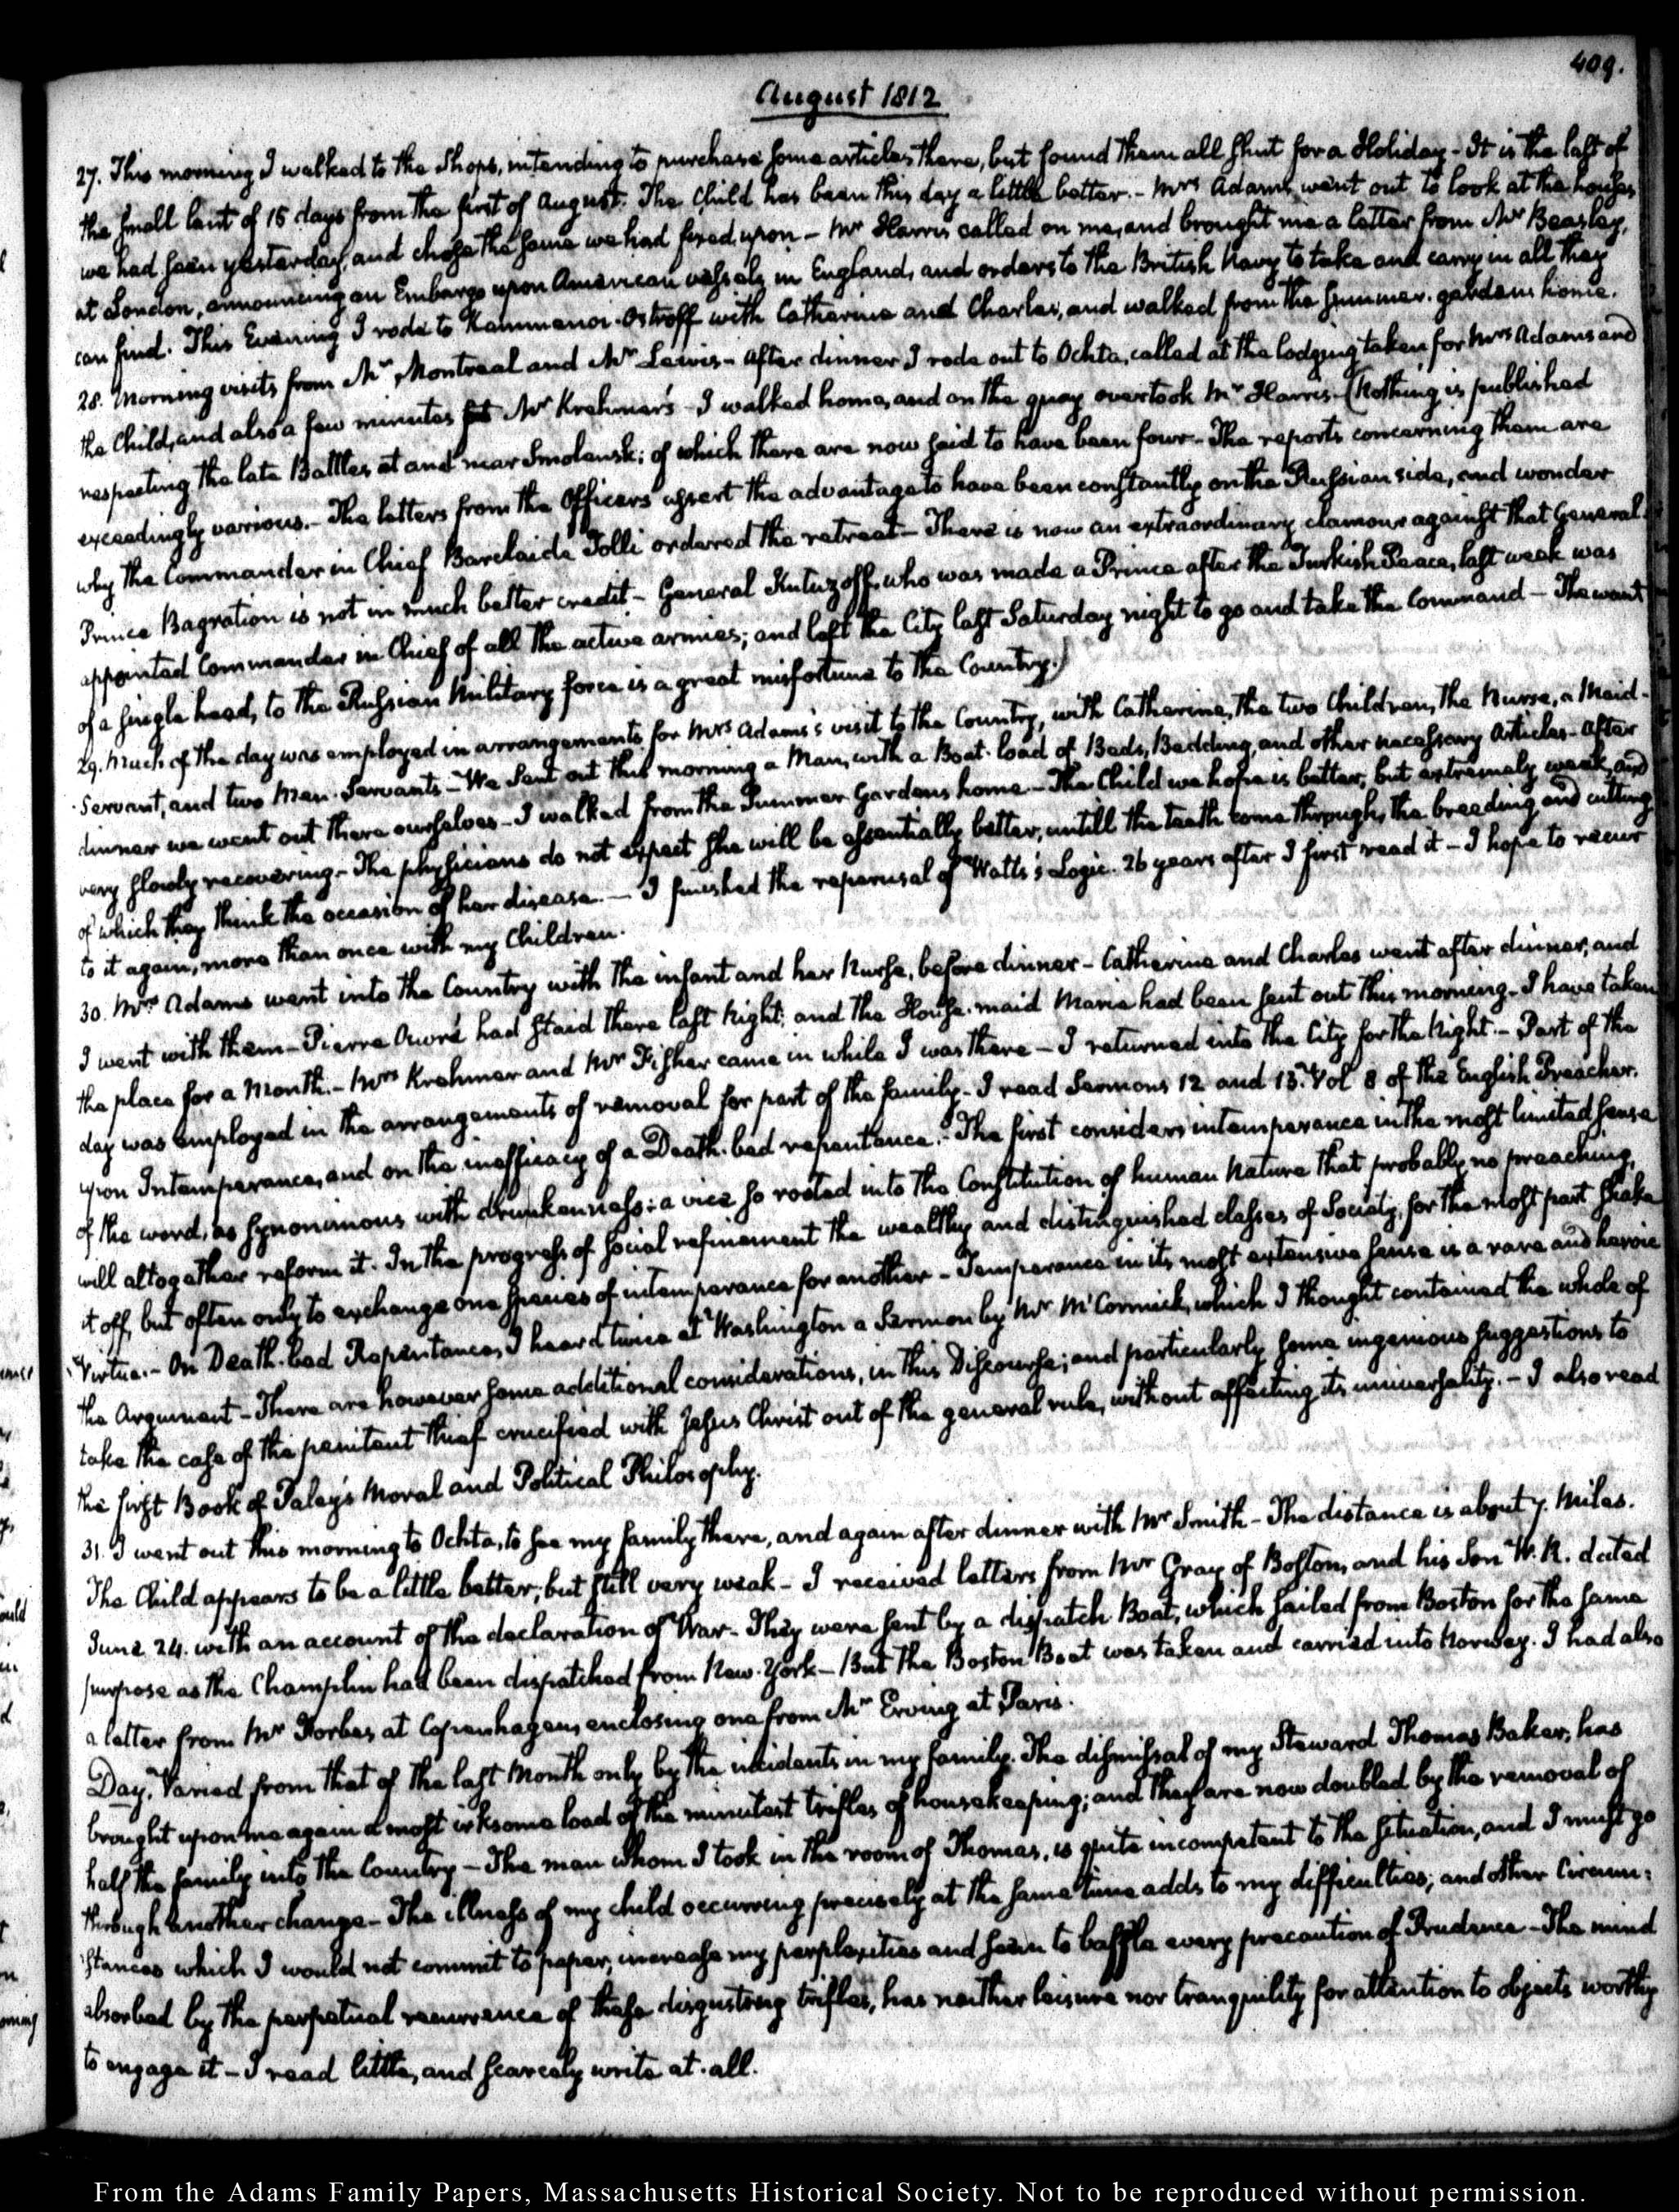 409.
August 1812
27. This morning I walked to the Shops, intending to purchase some articles there, but found them all shut for a Holiday - It is the last of
the small lent of 15 days from the first of August. The Child has been this day a little better. - Mrs Adams went out to look at the houses
we had seen yesterday, and chose the same we had fixed upon - Mr Harris called on me, and brought me a letter from Mr Beasley,
at London, announcing an Embargo upon American vessels in England, and orders to the British Navy to take and carry in all they
can find. This Evening I rode to Kammenoi-Ostroff with Catherine and Charles, and walked from the summer-gardens home.
28. Morning visits from Mr Montreal and Mr Lewis - After dinner I rode out to Ochta, called at the lodging taken for Mrs Adams and
the Child, and also a few minutes at Mr Krehmer's - I walked home, and on the quay overtook Mr Harris - (Nothing is published
respecting the late Battles at and near Smolensk; of which there are now said to have been four - The reports concerning them are
exceedingly various. - The letters from the Officers assert the advantage to have been constantly on the Russian side, and wonder
why the Commander in Chief Barclai de Tolli ordered the retreat - There is now an extraordinary clamour against that General.
Prince Bagration is not in much better credit - General Kutuzoff, who was made a Prince after the Turkish Peace, last week was
appointed Commander in Chief of all the active armies; and left the City last Saturday night to go and take the Command - The want
of a single head, to the Russian Military force is a great misfortune to the Country.)
29. Much of the day was employed in arrangements for Mrs Adams's visit to the Country, with Catherine, the two Children, the Nurse, a Maid-
Servant, and two Men-Servants - We sent out this morning a Man, with a Boat-load of Beds, Bedding, and other necessary Articles - After
dinner we went out there ourselves - I walked from the Summer Gardens home - The Child we hope is better, but extremely weak, and
very slowly recovering - The physicians do not expect she will be essentially better, untill the teeth come through, the breeding and cutting
of which they think the occasion of her disease. - I finished the reperusal of Watts's Logic. 26 years after I first read it - I hope to recur
to it again, more than once with my Children.
30. Mrs Adams went into the Country with the infant and her Nurse, before dinner - Catherine and Charles went after dinner, and
I went with them - Pierre Aworé had staid there last Night; and the House-maid Maria had been sent out this morning - I have taken
the place for a Month. - Mrs Krehmer and Mr Fisher came in while I was there - I returned into the City for the Night. - Part of the
day was employed in the arrangements of removal for part of the family - I read Sermons 12 and 13. Vol 8 of the English Preacher.
upon Intemperance, and on the inefficacy of a Death-bed repentance. - The first considers intemperance in the most limited sense
of the word, as synonimous with drunkenness: a vice so rooted into the Constitution of human Nature that probably no preaching,
will altogether reform it. In the progress of social refinement the wealthy and distinguished classes of Society, for the most part shake
it off, but often only to exchange one species of intemperance for another - Temperance in its most extensive sense is a rare and heroic
Virtue. - On Death-bed Repentance, I heard twice at Washington a Sermon by Mr McCormick, which I thought contained the whole of
the Argument - There are however some additional considerations, in this Discourse; and particularly some ingenious suggestions to
take the case of the penitent thief crucified with Jesus Christ out of the general rule, without affecting its universality. - I also read
the first Book of Paley's Moral and Political Philosophy.
31. I went out this morning to Ochta, to see my family there, and again after dinner with Mr Smith - The distance is about 7. Miles.
The Child appears to be a little better, but still very weak - I received letters from Mr Gray of Boston, and his Son W. R. dated
June 24. with an account of the declaration of War - They were sent by a dispatch Boat, which sailed from Boston for the same
purpose as the Champlin had been dispatched from New-York - But the Boston Boat was taken and carried into Norway. I had also
a letter from Mr Forbes at Copenhagen, enclosing one from Mr Erving at Paris.
Day. Varied from that of the last Month only by the incidents in my family. The dismissal of my Steward Thomas Baker, has
brought upon me again a most irksome load of the minutest trifles of housekeeping; and they are now doubled by the removal of
half the family into the Country - The man whom I took in the room of Thomas, is quite incompetent to the situation, and I must go
through another change - The illness of my child occurring precisely at the same time adds to my difficulties; and other Circum:
stances which I would not commit to paper, increase my perplexities and seem to baffle every precaution of Prudence - The mind
absorbed by the perpetual recurrence of these disgusting trifles, has neither leisure nor tranquility for attention to objects worthy
to engage it - I read little, and scarcely write at-all.
From the Adams Family Papers, Massachusetts Historical Society. Not to be reproduced without permission.